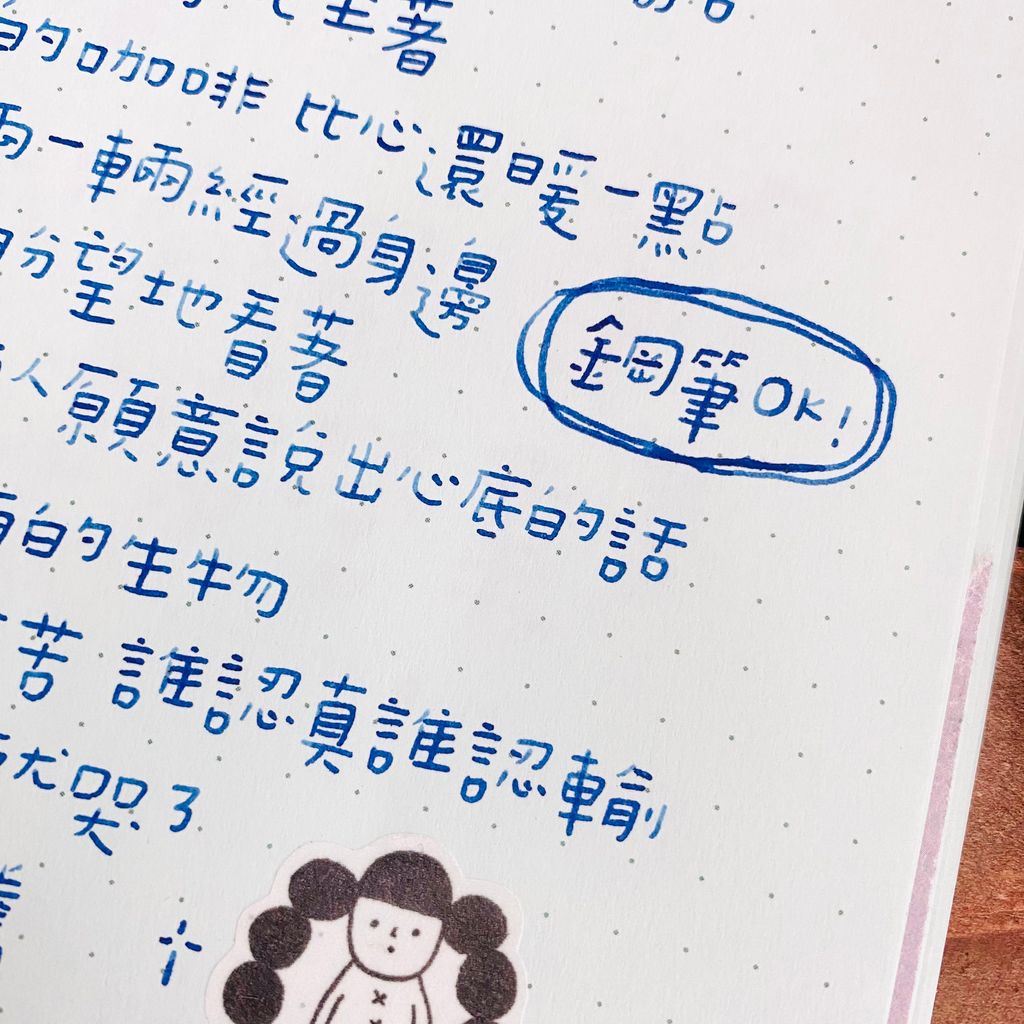 坐著
的咖啡 比心還暖一點
兩一輛經過身邊
份望地看著
人願意說出心底的話
鋼筆OK!
的生物
苦 誰認真誰認輸
就哭了